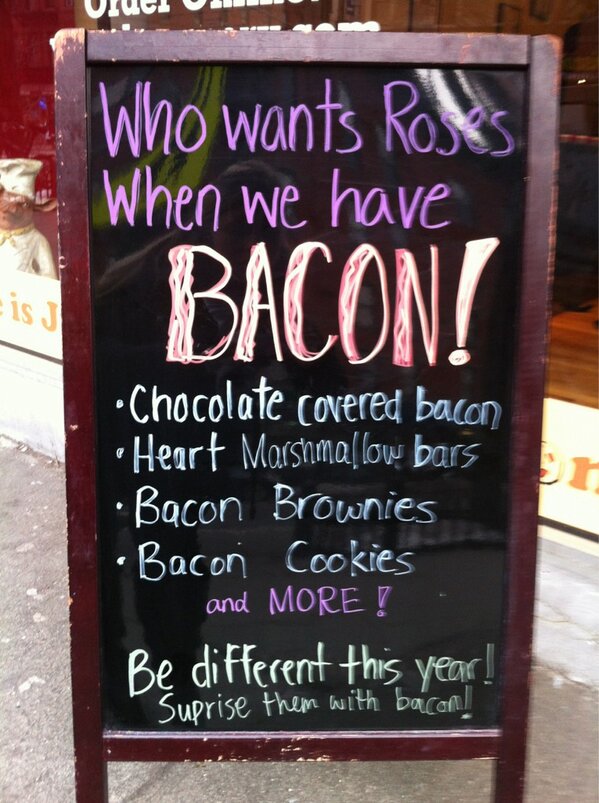 Order Online
Who wants Roses
When we have
BACON!
• Chocolate covered bacon
• Heart Marshmallow bars
• Bacon Brownies
• Bacon Cookies
and MORE!
Be different this year!
Suprise them with bacon!
e is J